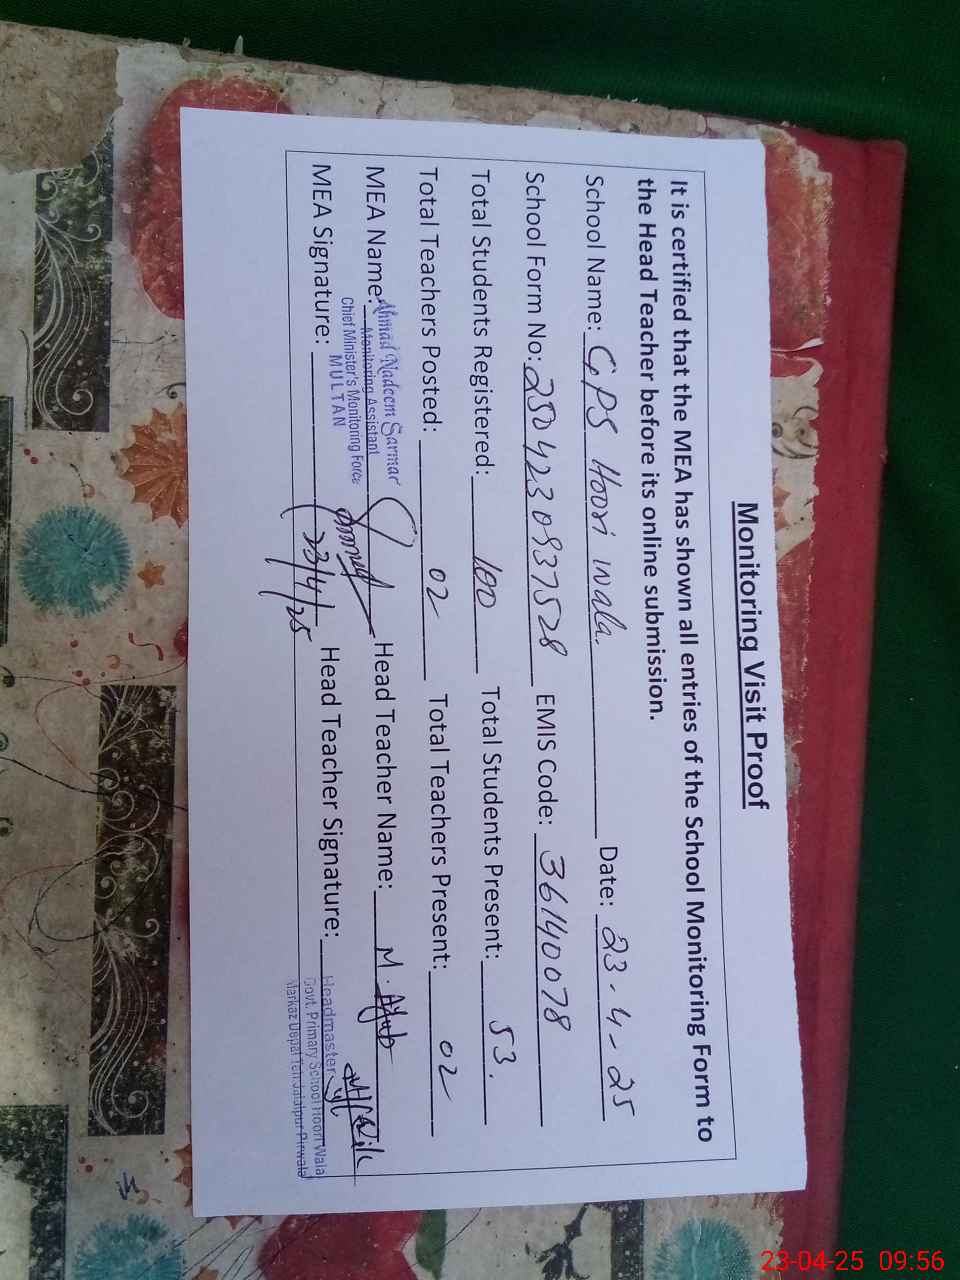 Monitoring Visit Proof
It is certified that the MEA has shown all entries of the School Monitoring Form to
the Head Teacher before its online submission.
School Name: GPS Hoori wala. Date: 23-4-25
School Form No: 2504230937528 EMIS Code: 36140078
Total Students Registered: 100 Total Students Present: 53.
Total Teachers Posted: 02 Total Teachers Present: 02
MEA Name: Ahmad Nadeem Sarmar Head Teacher Name: M. Ayub
Monitoring Assistant
Chief Minister's Monitoring Force
MULTAN
MEA Signature: 23/4/25 Head Teacher Signature:
Headmaster
Govt. Primary School Hoori Wala
Markaz Depal Teh Jalalpur Pirwala
23-04-25 09:56